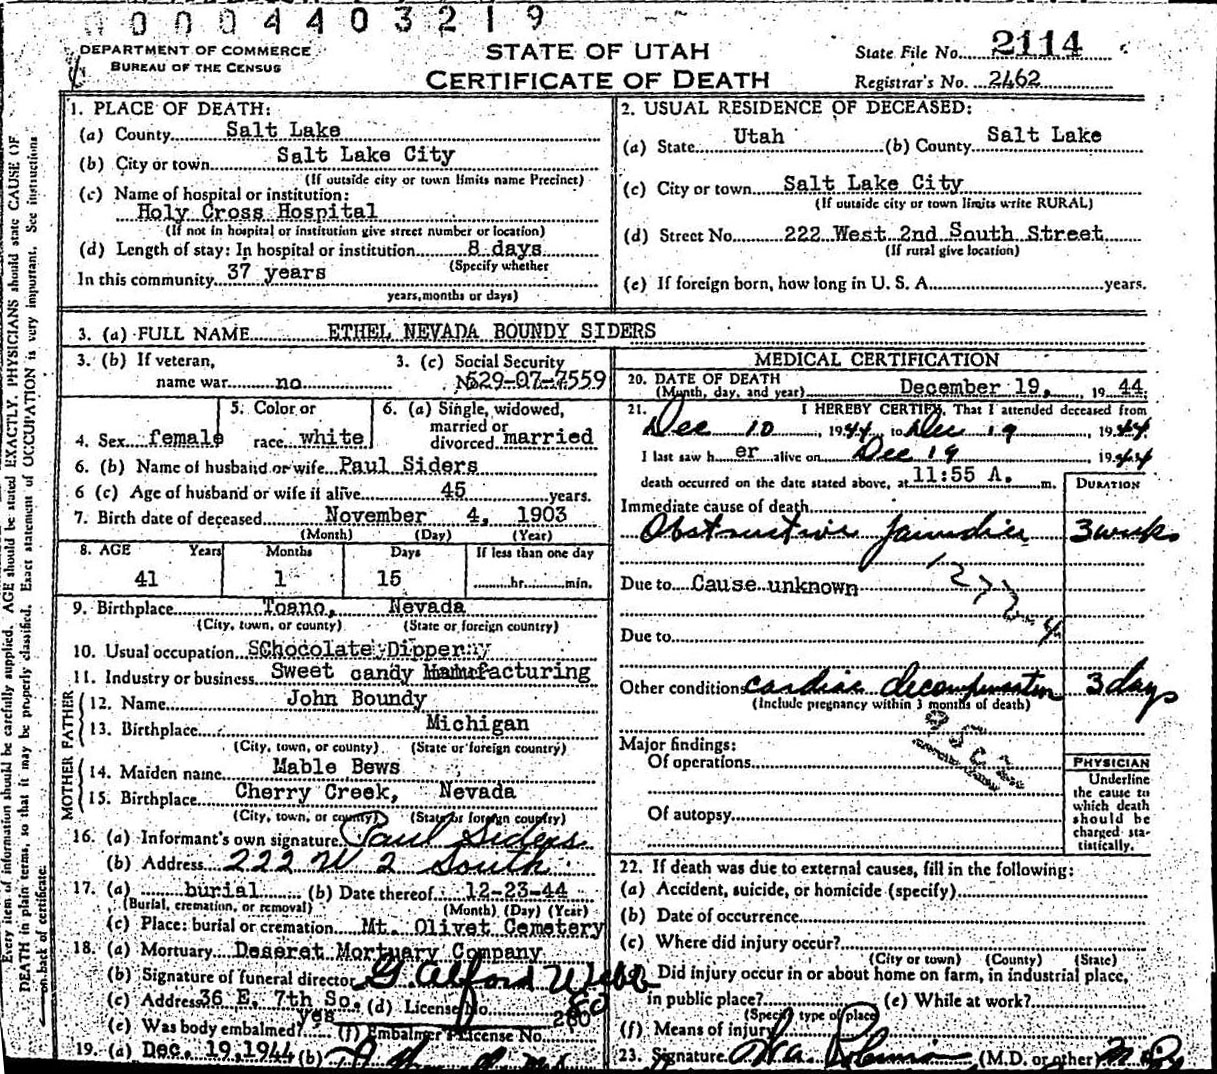 0 0 0 4 4 0 3 2 1 9
DEPARTMENT OF COMMERCE
BUREAU OF THE CENSUS
STATE OF UTAH
CERTIFICATE OF DEATH
State File No. 2114
Registrar's No. 2462
Every item of information should be carefully supplied. AGE should be stated EXACTLY. PHYSICIANS should state CAUSE OF
DEATH in plain terms, so that it may be properly classified. Exact statement of OCCUPATION is very important. See instructions
on back of certificate.
1. PLACE OF DEATH:
(a) County Salt Lake
(b) City or town Salt Lake City
(If outside city or town limits name Precinct)
(c) Name of hospital or institution:
Holy Cross Hospital
(If not in hospital or institution give street number or location)
(d) Length of stay: In hospital or institution 8 days
(Specify whether
In this community 37 years
years, months or days)
2. USUAL RESIDENCE OF DECEASED:
(a) State Utah (b) County Salt Lake
(c) City or town Salt Lake City
(If outside city or town limits write RURAL)
(d) Street No. 222 West 2nd South Street
(If rural give location)
(e) If foreign born, how long in U. S. A. years.
3. (a) FULL NAME ETHEL NEVADA BOUNDY SIDERS
3. (b) If veteran,
name war no
3. (c) Social Security
No 529-07-7559
4. Sex female
5. Color or
race white
6. (a) Single, widowed,
married or
divorced married
6. (b) Name of husband or wife Paul Siders
6 (c) Age of husband or wife if alive 45 years.
7. Birth date of deceased November 4, 1903
(Month) (Day) (Year)
8. AGE Years Months Days If less than one day
41 1 15 hr. min.
9. Birthplace Toano, Nevada
(City, town, or county) (State or foreign country)
10. Usual occupation Chocolate Dipper
11. Industry or business Sweet candy Manufacturing
FATHER
12. Name John Boundy
13. Birthplace Michigan
(City, town, or county) (State or foreign country)
MOTHER
14. Maiden name Mable Bews
15. Birthplace Cherry Creek, Nevada
(City, town, or county) (State or foreign country)
16. (a) Informant's own signature Paul Siders
(b) Address 222 W 2 South
17. (a) burial (b) Date thereof 12-23-44
(Burial, cremation, or removal) (Month) (Day) (Year)
(c) Place: burial or cremation Mt. Olivet Cemetery
18. (a) Mortuary Deseret Mortuary Company
(b) Signature of funeral director G. Alford Webb
(c) Address 36 E. 7th So. (d) License No. 80
(e) Was body embalmed? yes (f) Embalmer's License No. 260
19. (a) Dec. 19, 1944 (b)
MEDICAL CERTIFICATION
20. DATE OF DEATH
(Month, day, and year) December 19, 1944
21. I HEREBY CERTIFY, That I attended deceased from
Dec 10, 1944 to Dec 19, 1944
I last saw her alive on Dec 19 1944
death occurred on the date stated above, at 11:55 A. m.
DURATION
Immediate cause of death
Obstructive jaundice 3 weeks
Due to Cause unknown
Due to
Other conditions cardiac decompensation 3 days
(Include pregnancy within 3 months of death)
Major findings:
Of operations
Of autopsy
PHYSICIAN
Underline
the cause to
which death
should be
charged sta-
tistically.
22. If death was due to external causes, fill in the following:
(a) Accident, suicide, or homicide (specify)
(b) Date of occurrence
(c) Where did injury occur?
(City or town) (County) (State)
Did injury occur in or about home on farm, in industrial place,
in public place? (e) While at work?
(Specify type of place)
(f) Means of injury
23. Signature (M.D. or other) M.D.